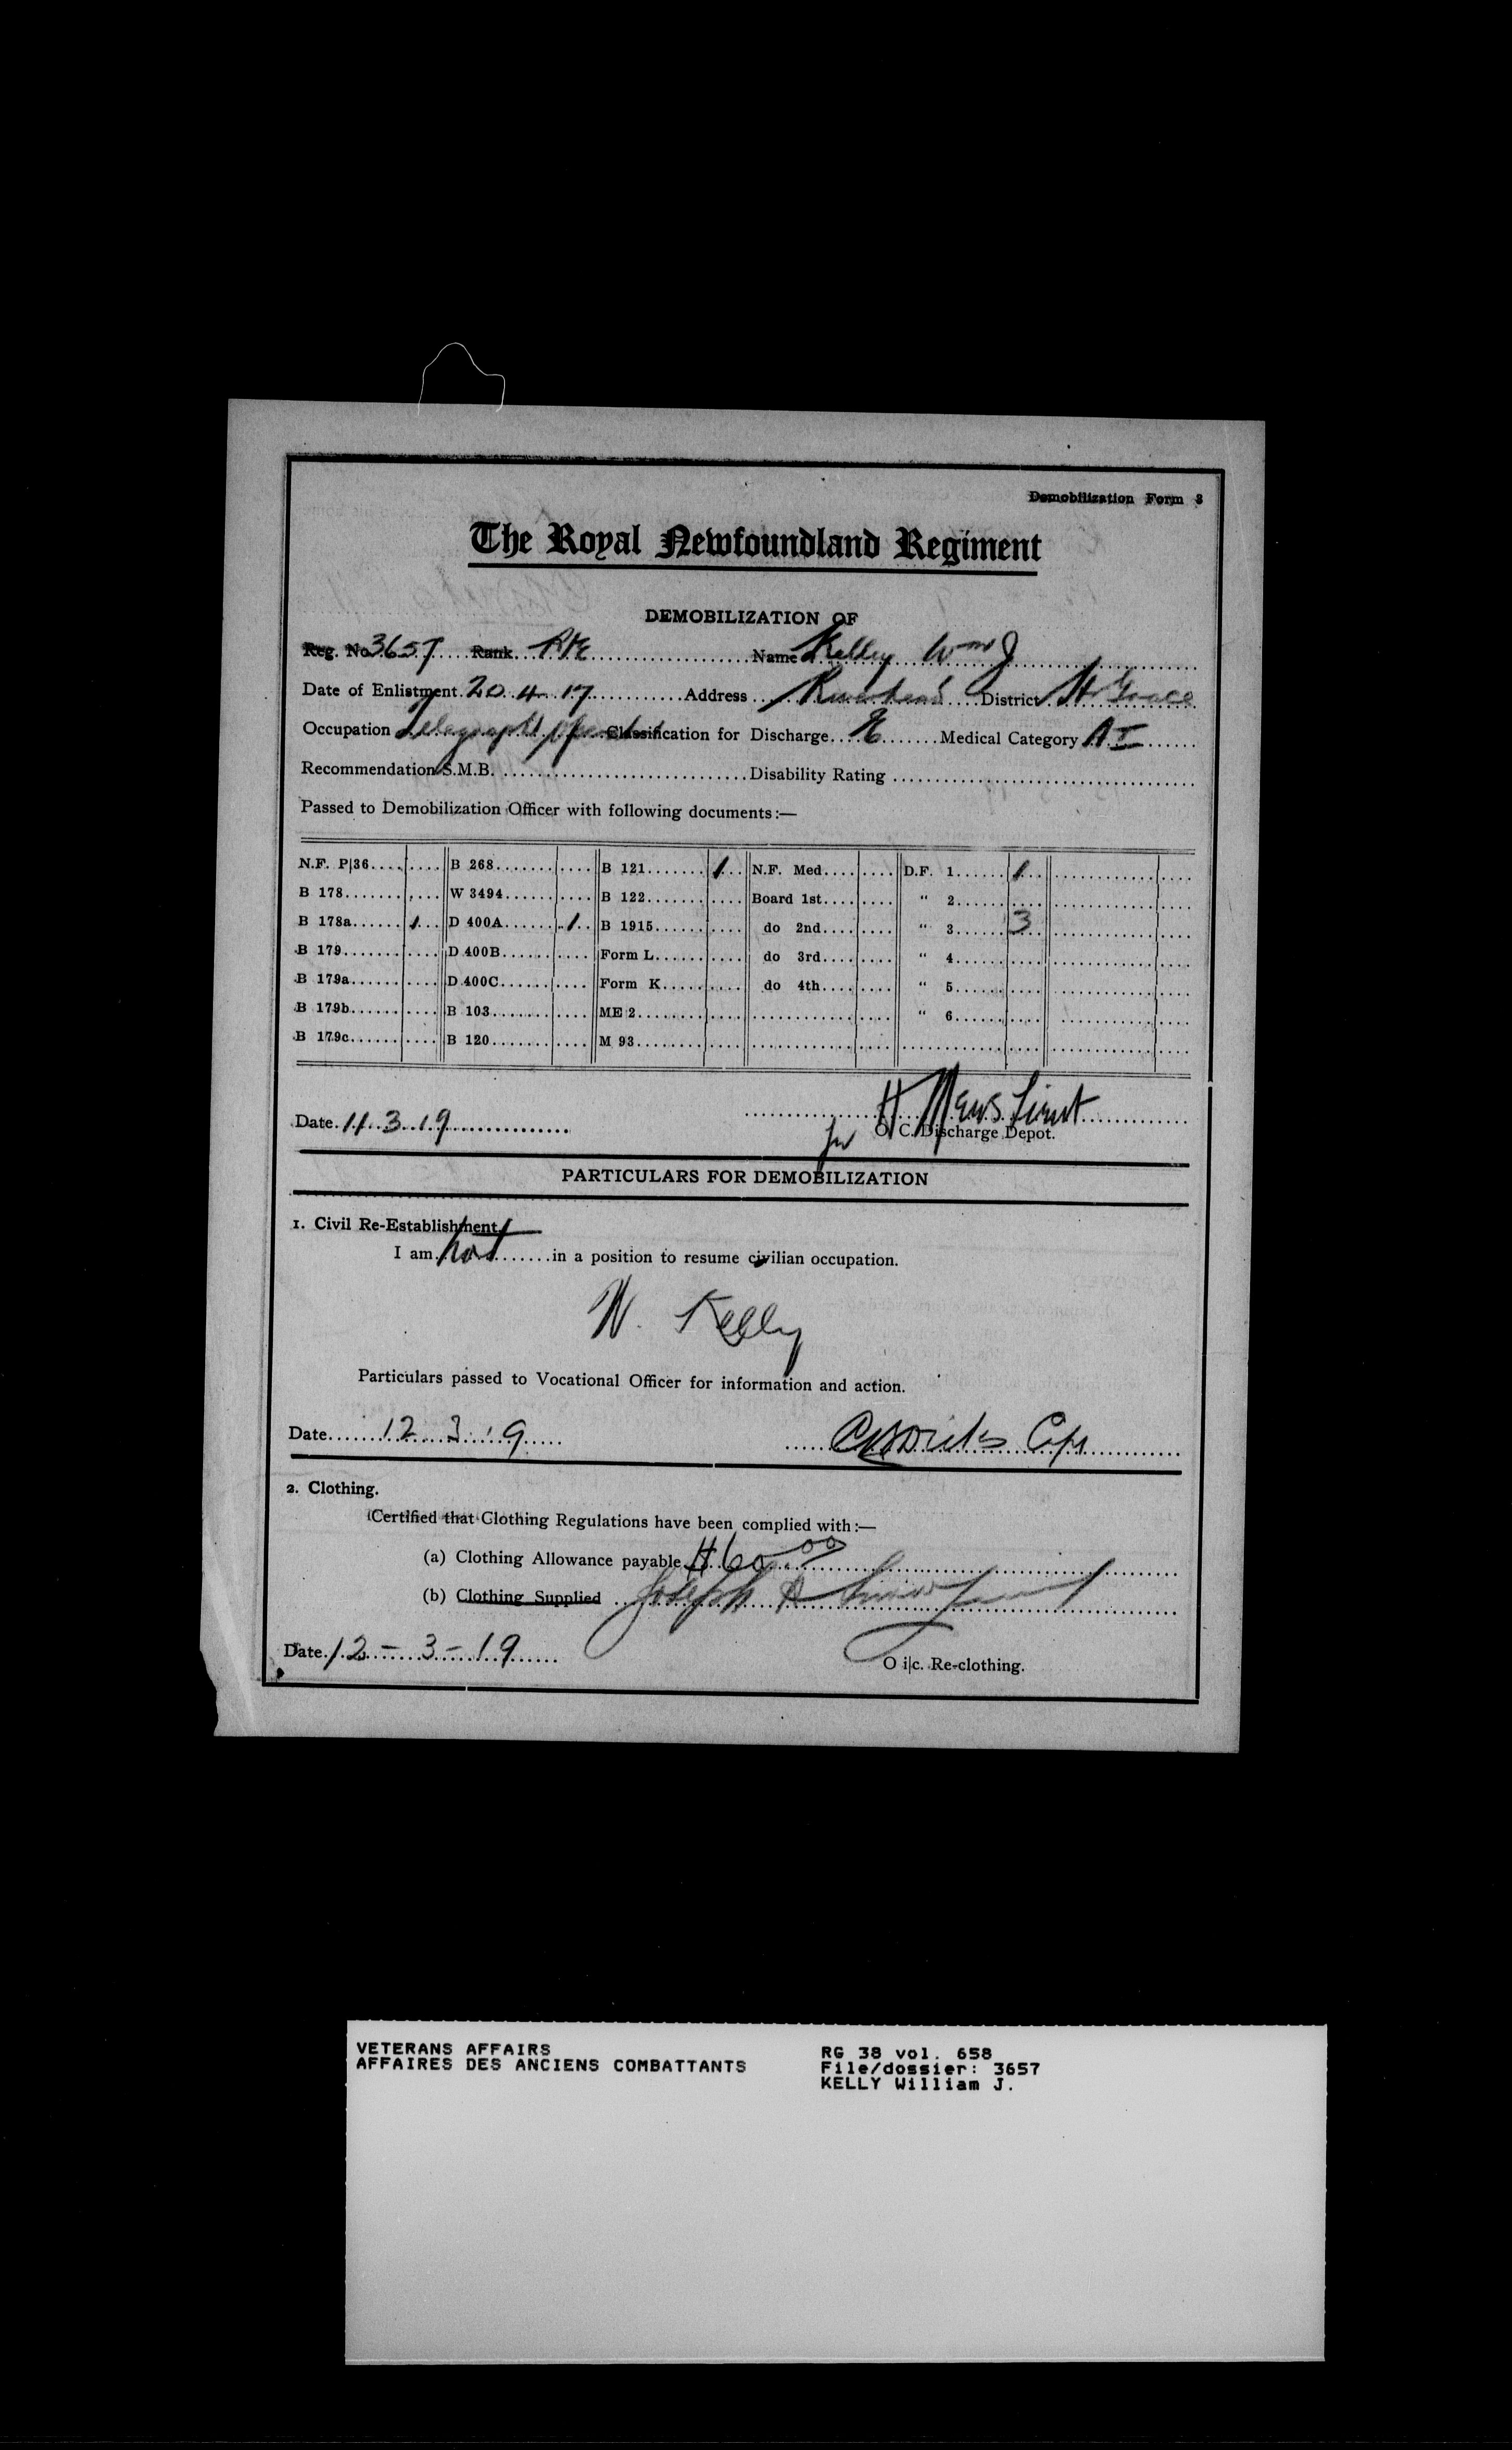 Demobilization Form 3
The Royal Newfoundland Regiment
DEMOBILIZATION OF
Reg. No. 3657 Rank Pte Name Kelley Wm J
Date of Enlistment 20.4.17 Address Riverhead District Hr Grace
Occupation Telegraph Operator Classification for Discharge E Medical Category A I
Recommendation S.M.B. Disability Rating
Passed to Demobilization Officer with following documents:—
N.F. P|36 B 268 B 121 1 N.F. Med. D.F. 1 1
B 178 W 3494 B 122 Board 1st " 2
B 178a 1 D 400A 1 B 1915 do 2nd " 3 3
B 179 D 400B Form L do 3rd " 4
B 179a D 400C Form K do 4th " 5
B 179b B 103 ME 2 " 6
B 179c B 120 M 93
H Mews Lieut
Date 11.3.19 for O. C. Discharge Depot.
PARTICULARS FOR DEMOBILIZATION
1. Civil Re-Establishment
I am not in a position to resume civilian occupation.
W. Kelly
Particulars passed to Vocational Officer for information and action.
Date 12 3 19 Dicks Capt.
2. Clothing.
Certified that Clothing Regulations have been complied with:—
(a) Clothing Allowance payable $60.00
(b) Clothing Supplied Joseph
Date 12-3-19 O i|c. Re-clothing.
VETERANS AFFAIRS RG 38 vol. 658
AFFAIRES DES ANCIENS COMBATTANTS File/dossier: 3657
KELLY William J.